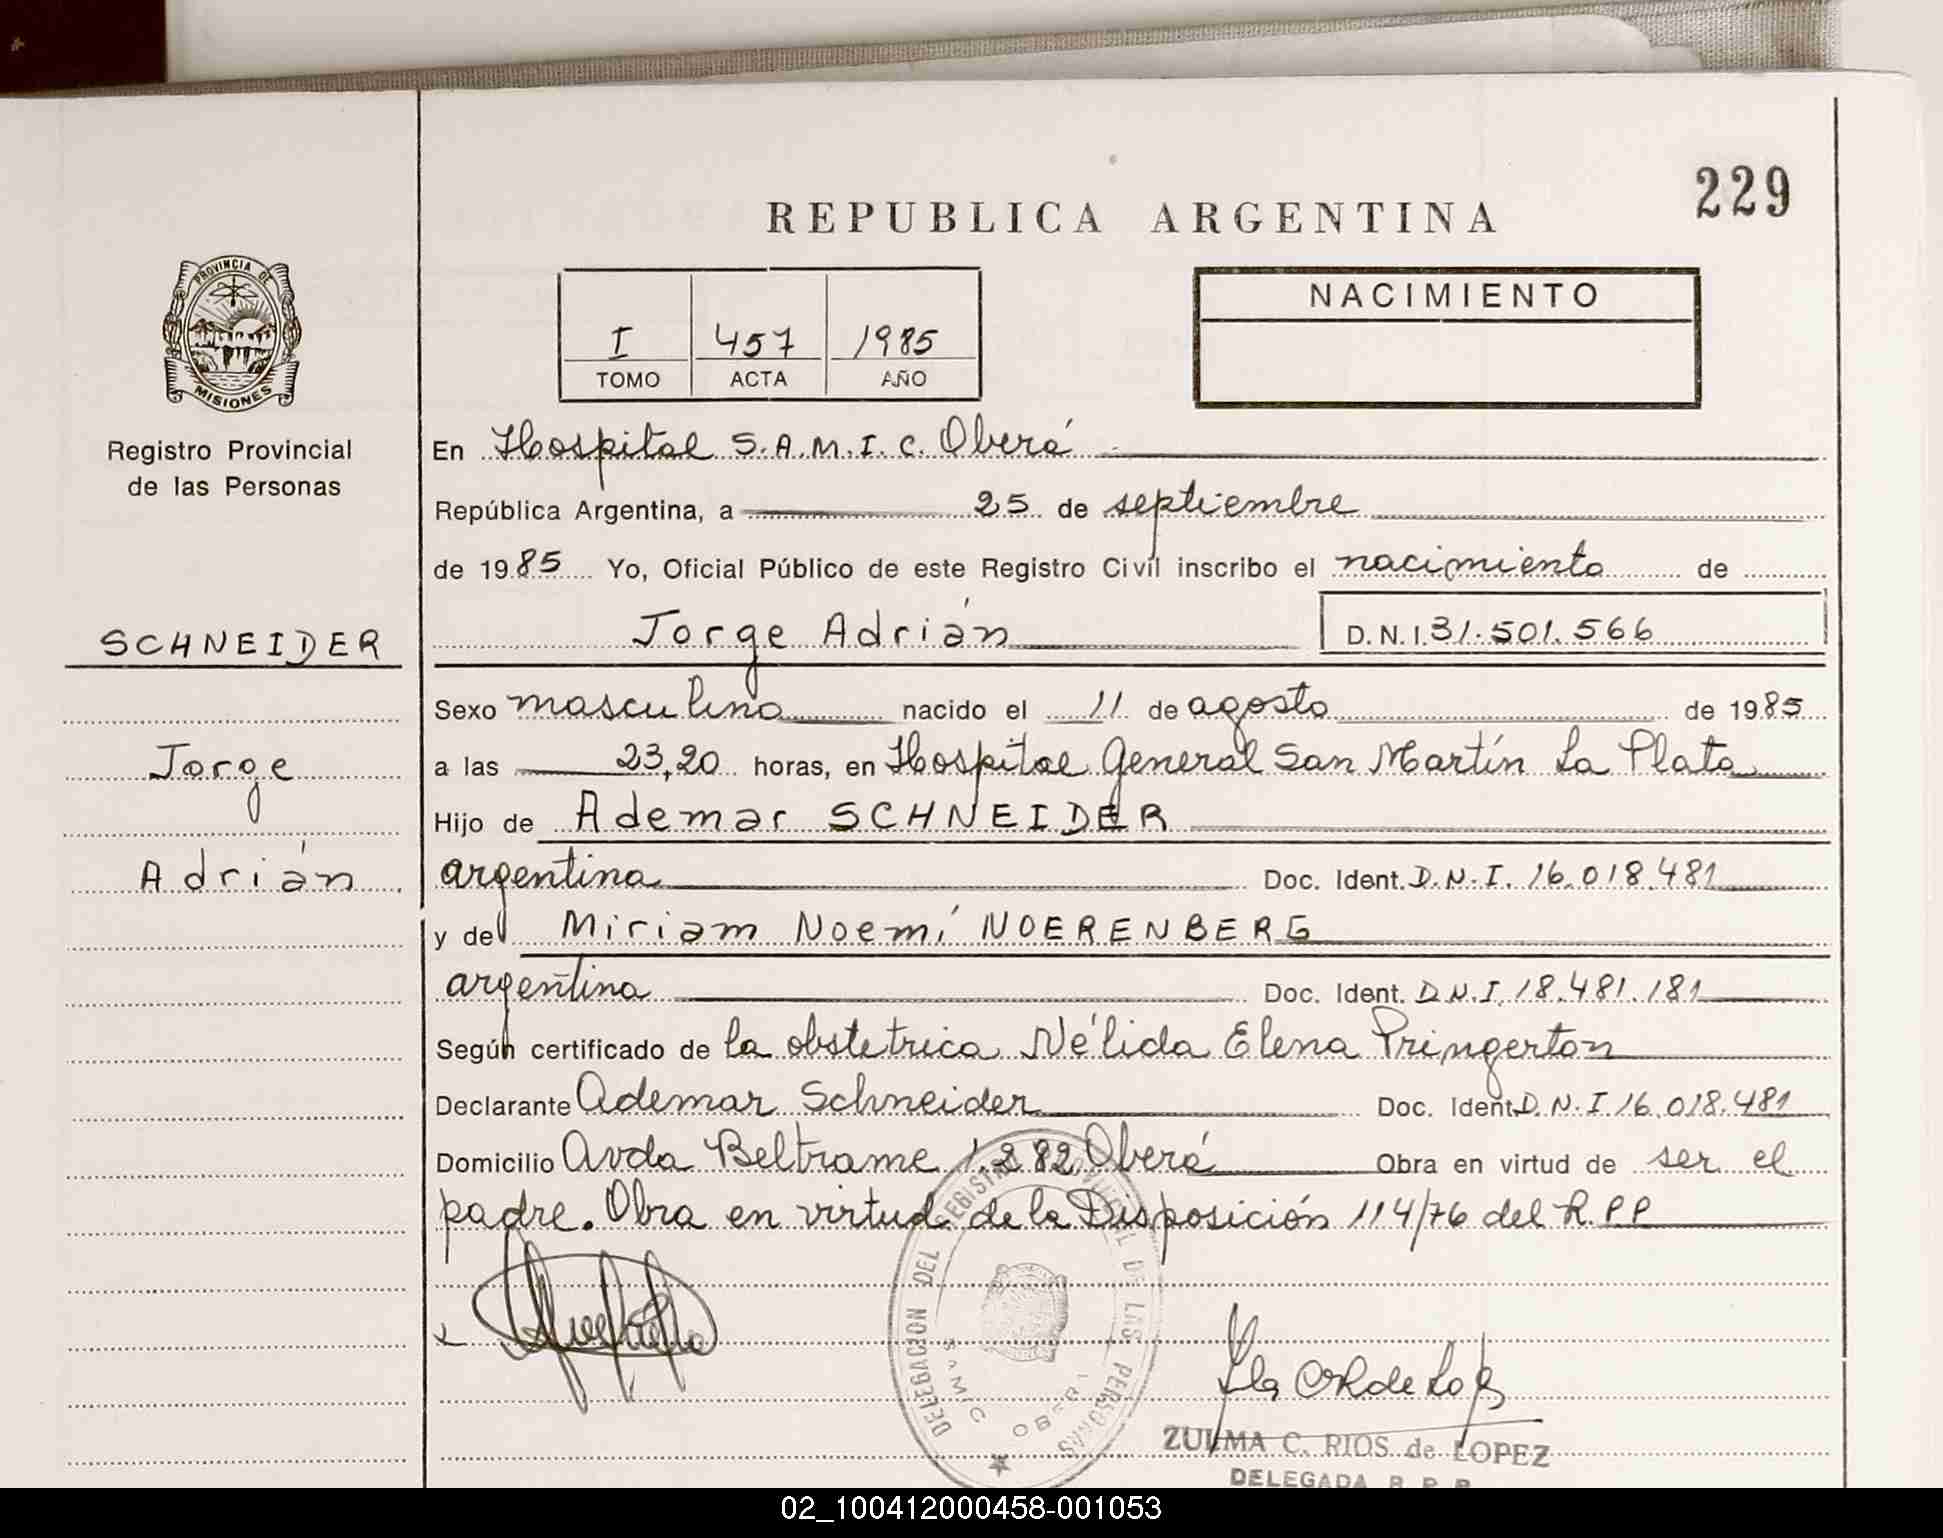 229
REPUBLICA ARGENTINA
PROVINCIA DE
MISIONES
Registro Provincial
de las Personas
NACIMIENTO
I 457 1985
TOMO ACTA AÑO
En Hospital S.A.M.I.C. Oberá
República Argentina, a 25 de septiembre
de 1985 Yo, Oficial Público de este Registro Civil inscribo el nacimiento de
Jorge Adrián D.N.I. 31.501.566
SCHNEIDER
Jorge
Adrián
Sexo masculino nacido el 11 de agosto de 1985
a las 23,20 horas, en Hospital General San Martín La Plata
Hijo de Ademar SCHNEIDER
argentina Doc. Ident. D.N.I. 16.018.481
y de Miriam Noemí NOERENBERG
argentina Doc. Ident. D.N.I. 18.481.181
Según certificado de la obstetrica Nélida Elena Pringerton
Declarante Ademar Schneider Doc. Ident. D.N.I. 16.018.481
Domicilio Avda Beltrame 1.282 Oberá Obra en virtud de ser el
padre. Obra en virtud de la Disposición 114/76 del R.P.P
DELEGACION DEL REGISTRO PROVINCIAL DE LAS PERSONAS
SAMIC OBERA
ZULMA C. RIOS de LOPEZ
DELEGADA R. P. P.
02_100412000458-001053